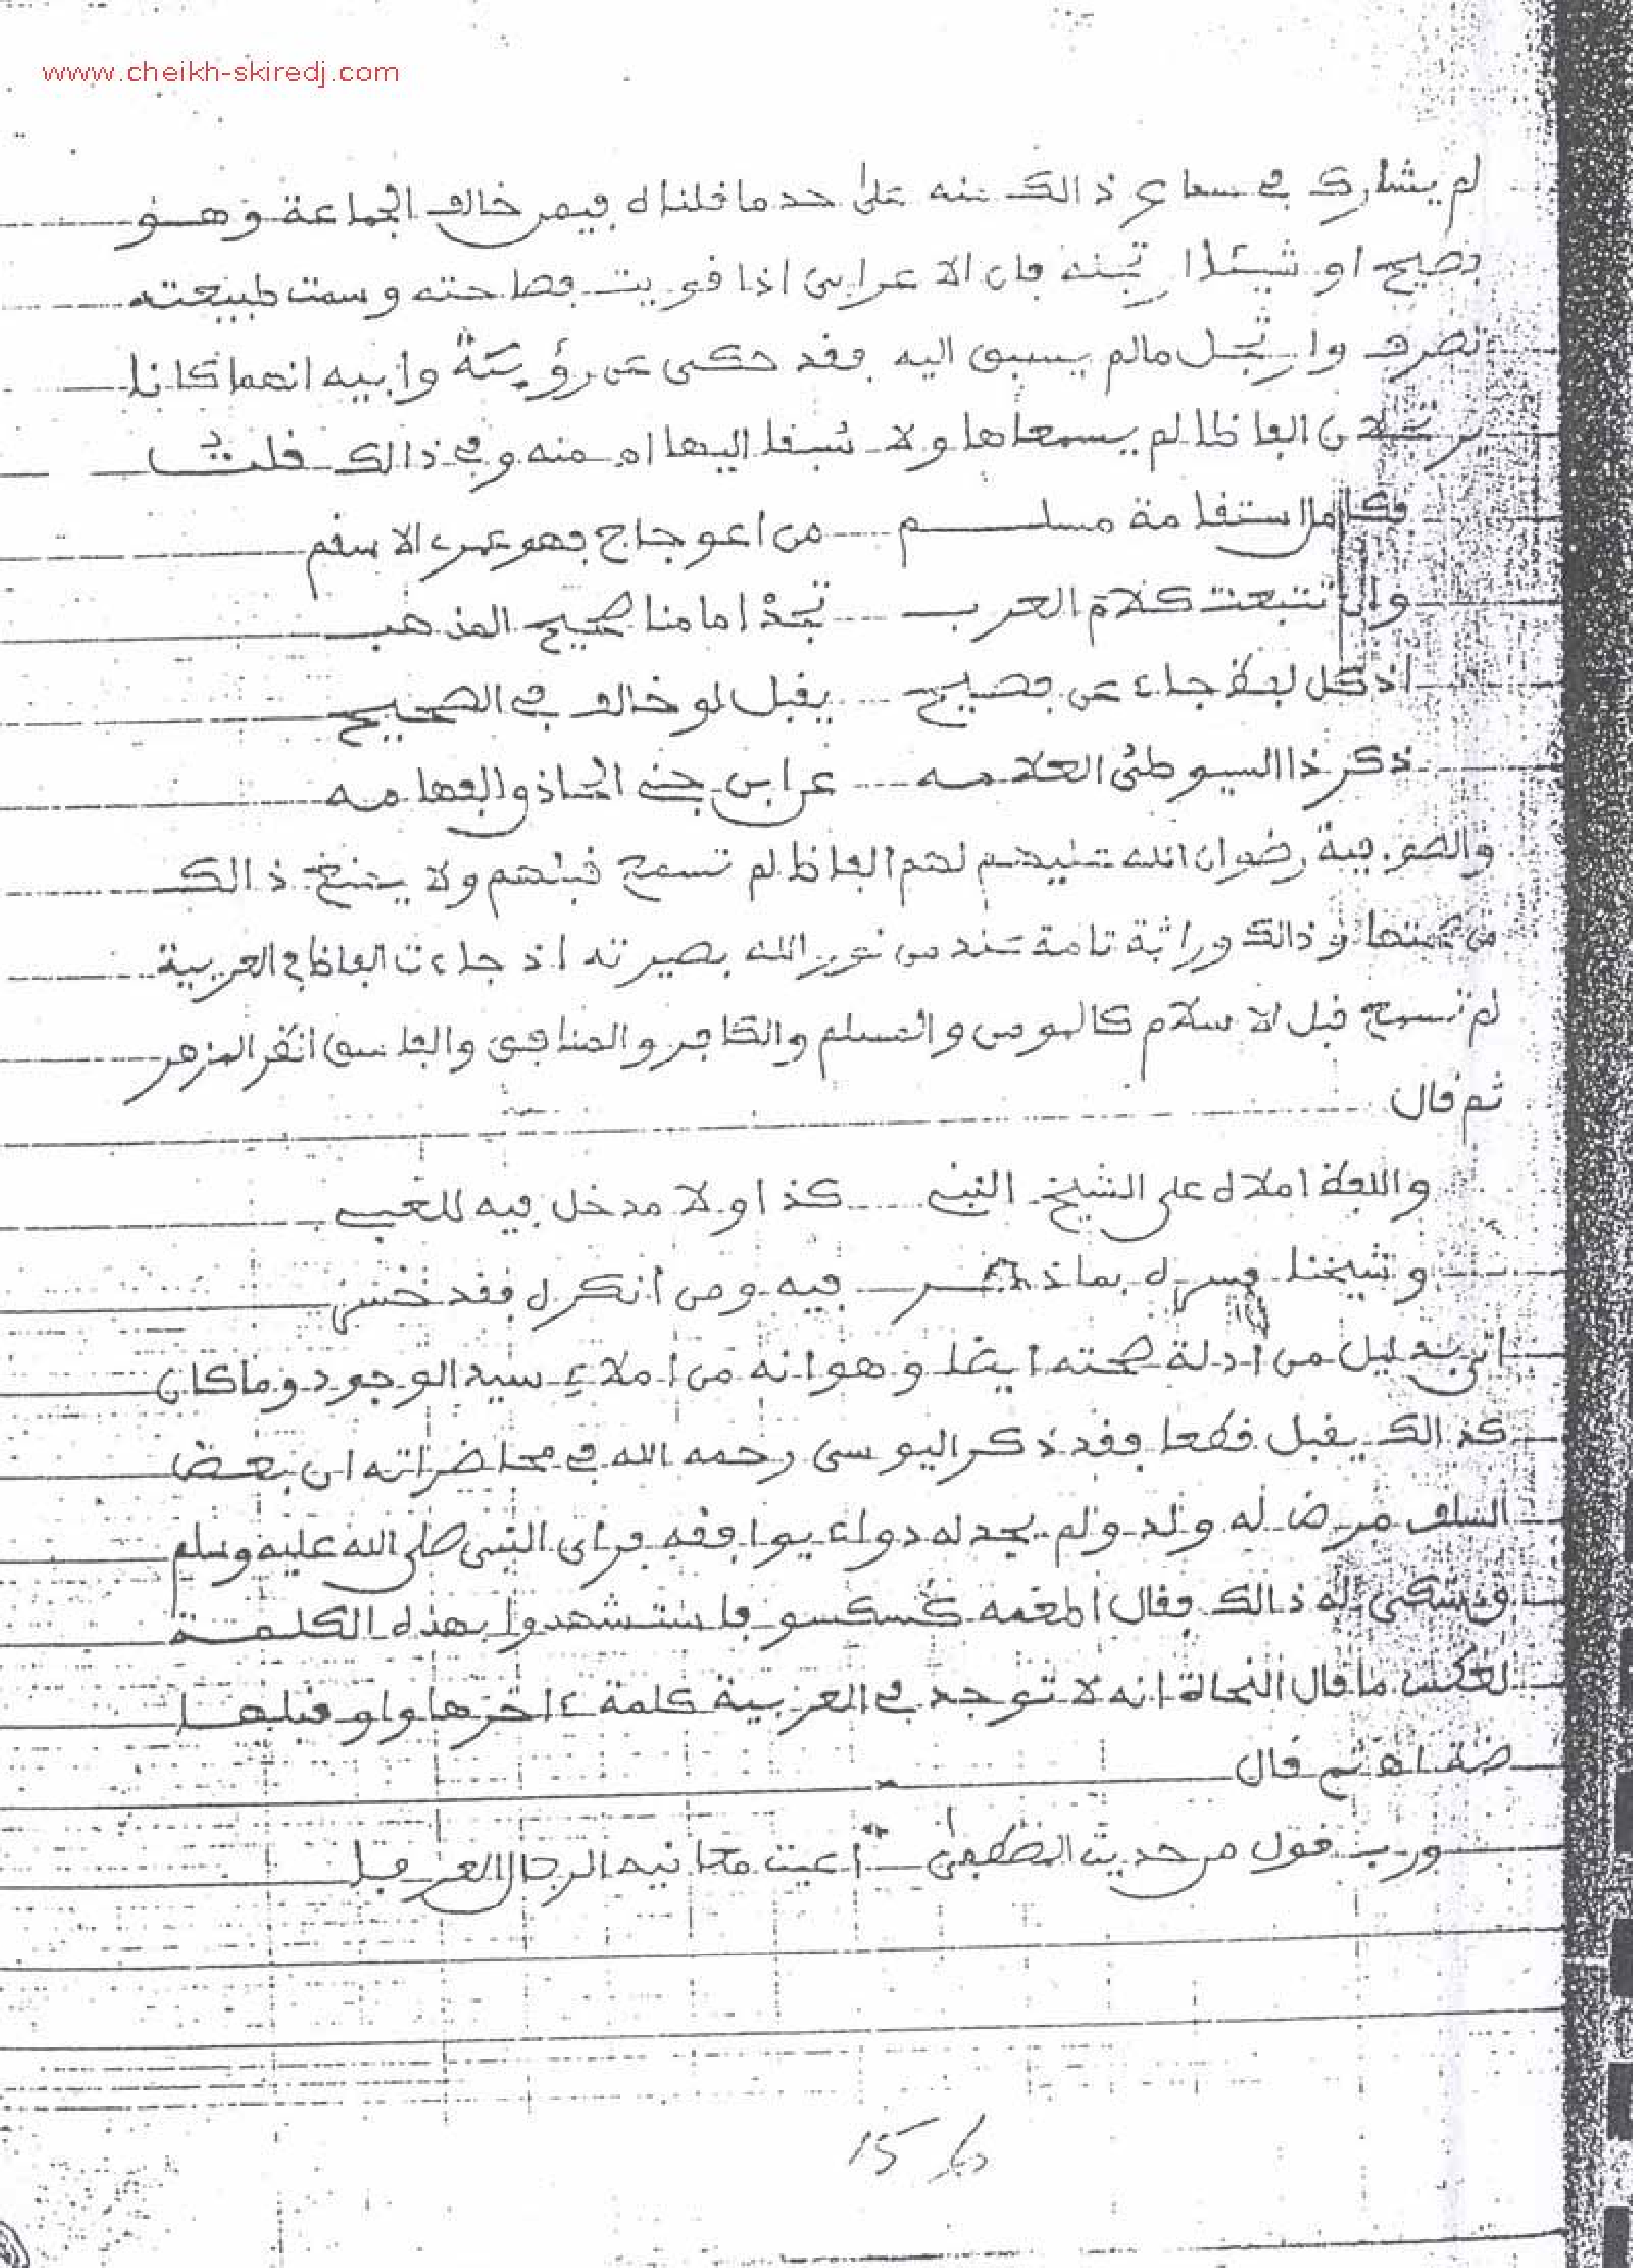 www.cheikh-skiredj.com
لم يشارك في سماع ذالك منه على حد ما قلناه فيمن خالف الجماعة وهو
فصيح او شيئا ارتجله فان الاعرابي اذا قويت فصاحته وسمت طبيعته
تصرف وارتجل ما لم يسبق اليه فقد حكى عن رؤبة وأبيه انهما كانا
يرتجلان الفاظا لم يسمعاها ولا سُبقا اليها اه منه وفي ذالك قلت
فكامل استقامة مسلم من اعوجاج فهو عن الاسقم
وان تتبعت كلام العرب تجدْ امامنا صحيح المذهب
اذ كل لفظ جاء عن فصيح يقبل لو خالف في الصحيح
ذكر ذا السيوطي العلامه عن ابن جني الحاذق الفهامه
والصوفية رضوان الله عليهم لهم الفاظ لم تسمع قبلهم ولا يمنع ذالك
من صحتها وذالك وراثة تامة عند من نور الله بصيرته اذ جاءت الفاظ في العربية
لم تسمع قبل الاسلام كالمومن والمسلم والكافر والمنافق والفاسق انظر المزهر
ثم قال
واللفظ املاه على الشيخ النبي كذا ولا مدخل فيه للغبي
وشيخنا فسره بما ذكر فيه ومن أنكره فقد خسر
اتى بدليل من أدلة صحته ايضا وهو انه من املاء سيد الوجود وما كان
كذالك يقبل قطعا فقد ذكر اليوسي رحمه الله في محاضراته ان بعض
السلف مرض له ولد ولم يجد له دواء يوافقه فرأى النبي صلى الله عليه وسلم
وشكى له ذالك فقال اطعمه كُسكسو فاستشهدوا بهذه الكلمة
لعكس ما قال النحاة انه لا توجد في العربية كلمة ءاخرها واو قبلها
ضمة اه ثم قال
ورب قول من حديث المصطفى أعيت معانيه الرجال العرفا
15